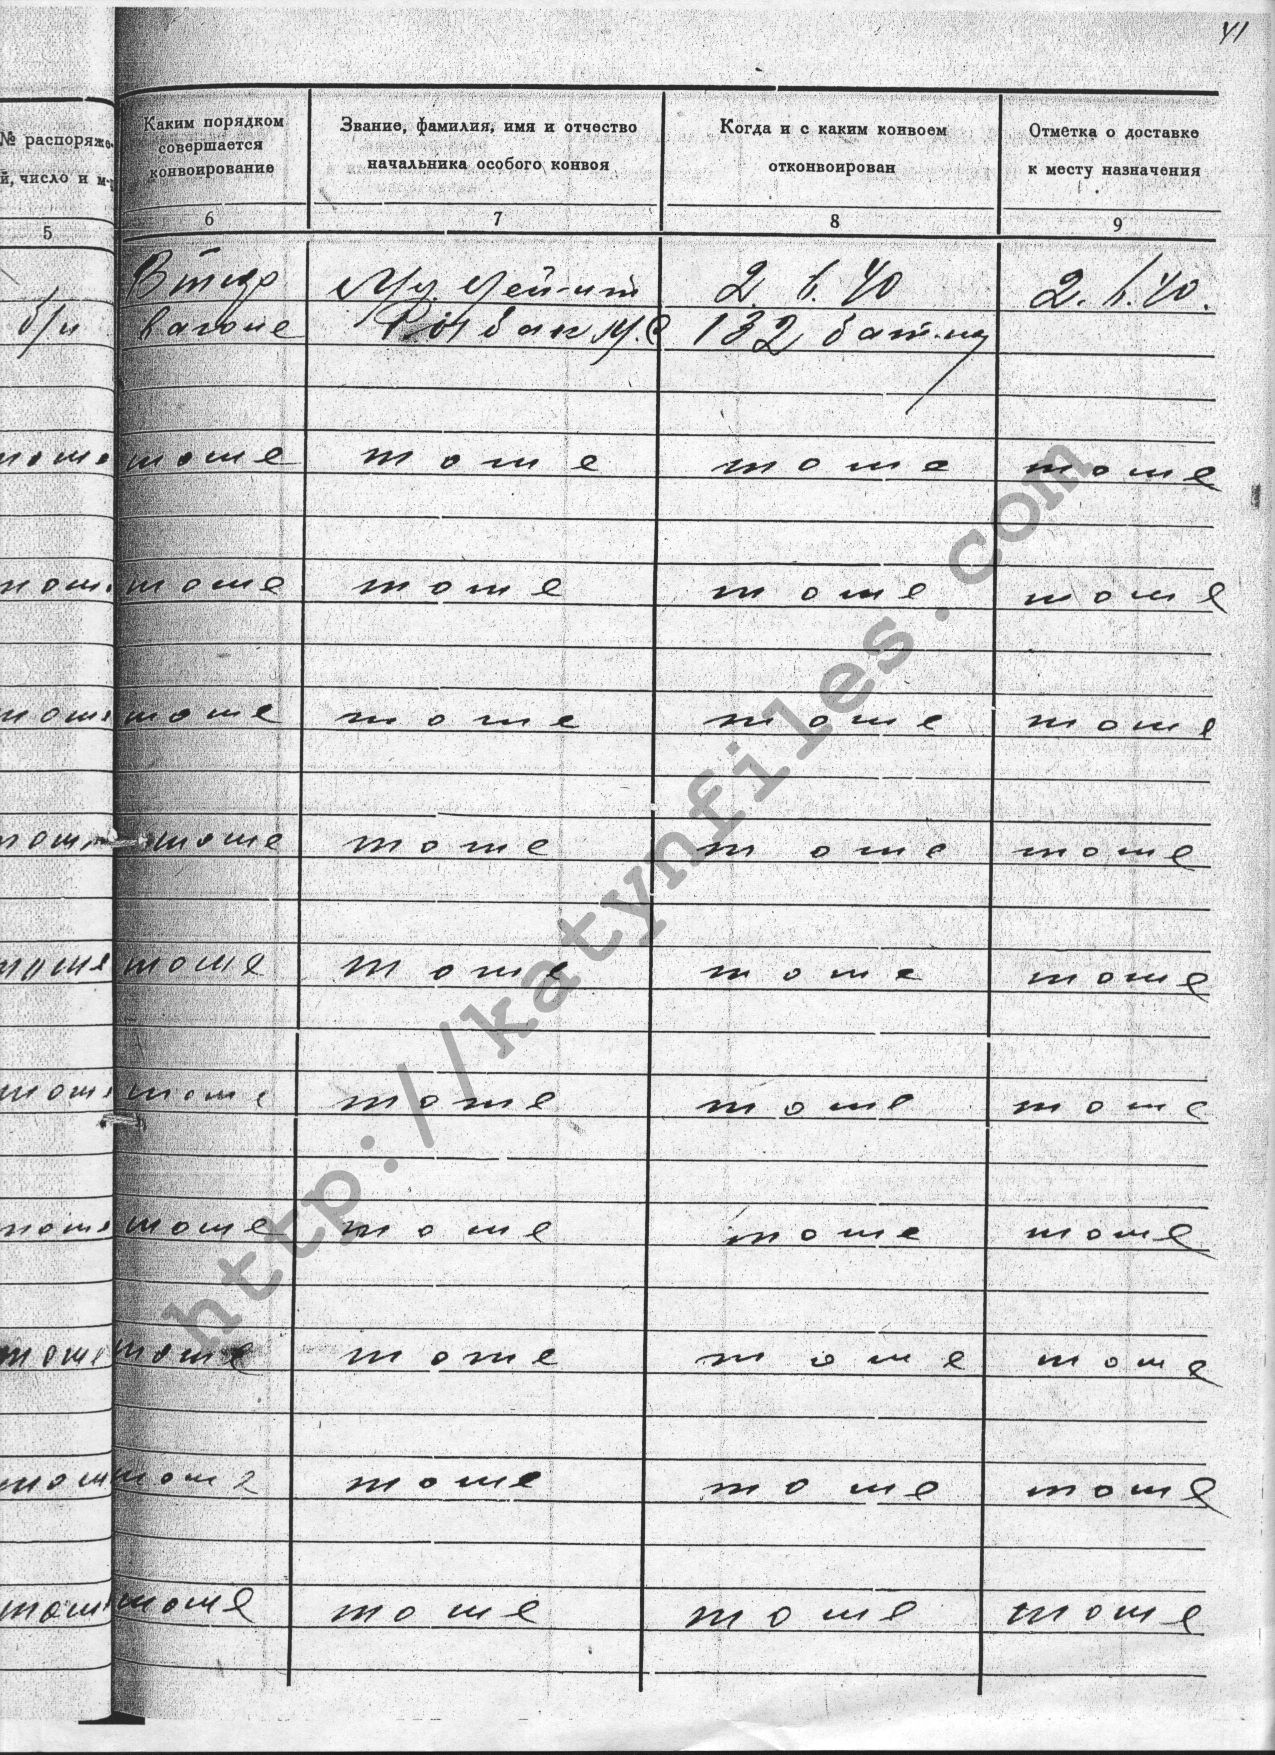 41
№ распоряже-
й, число и м-
Каким порядком
совершается
конвоирование
Звание, фамилия, имя и отчество
начальника особого конвоя
Когда и с каким конвоем
отконвоирован
Отметка о доставке
к месту назначения
5 6 7 8 9
В тюр Мл. Лей-нт 2. 6. 40 2. 6. 40.
б/н вагоне Рогбак М.С 132 бат-на
тоже тоже тоже тоже тоже
тоже тоже тоже тоже тоже
тоже тоже тоже тоже тоже
тоже тоже тоже тоже тоже
тоже тоже тоже тоже тоже
тоже тоже тоже тоже тоже
тоже тоже тоже тоже тоже
тоже тоже тоже тоже тоже
тоже тоже тоже тоже тоже
тоже тоже тоже тоже тоже
http://katynfiles.com